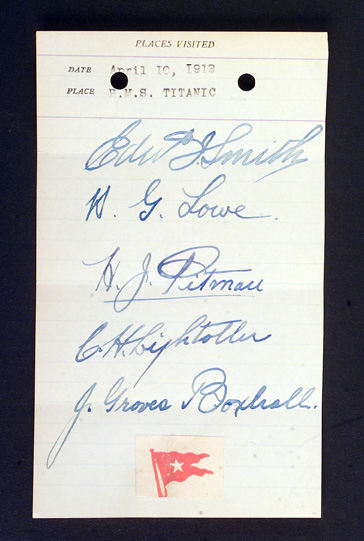 PLACES VISITED
DATE April 10, 1912
PLACE R.M.S. TITANIC
Edw J. Smith
H. G. Lowe.
H. J. Pitman
C. H. Lightoller
J. Groves Boxhall.